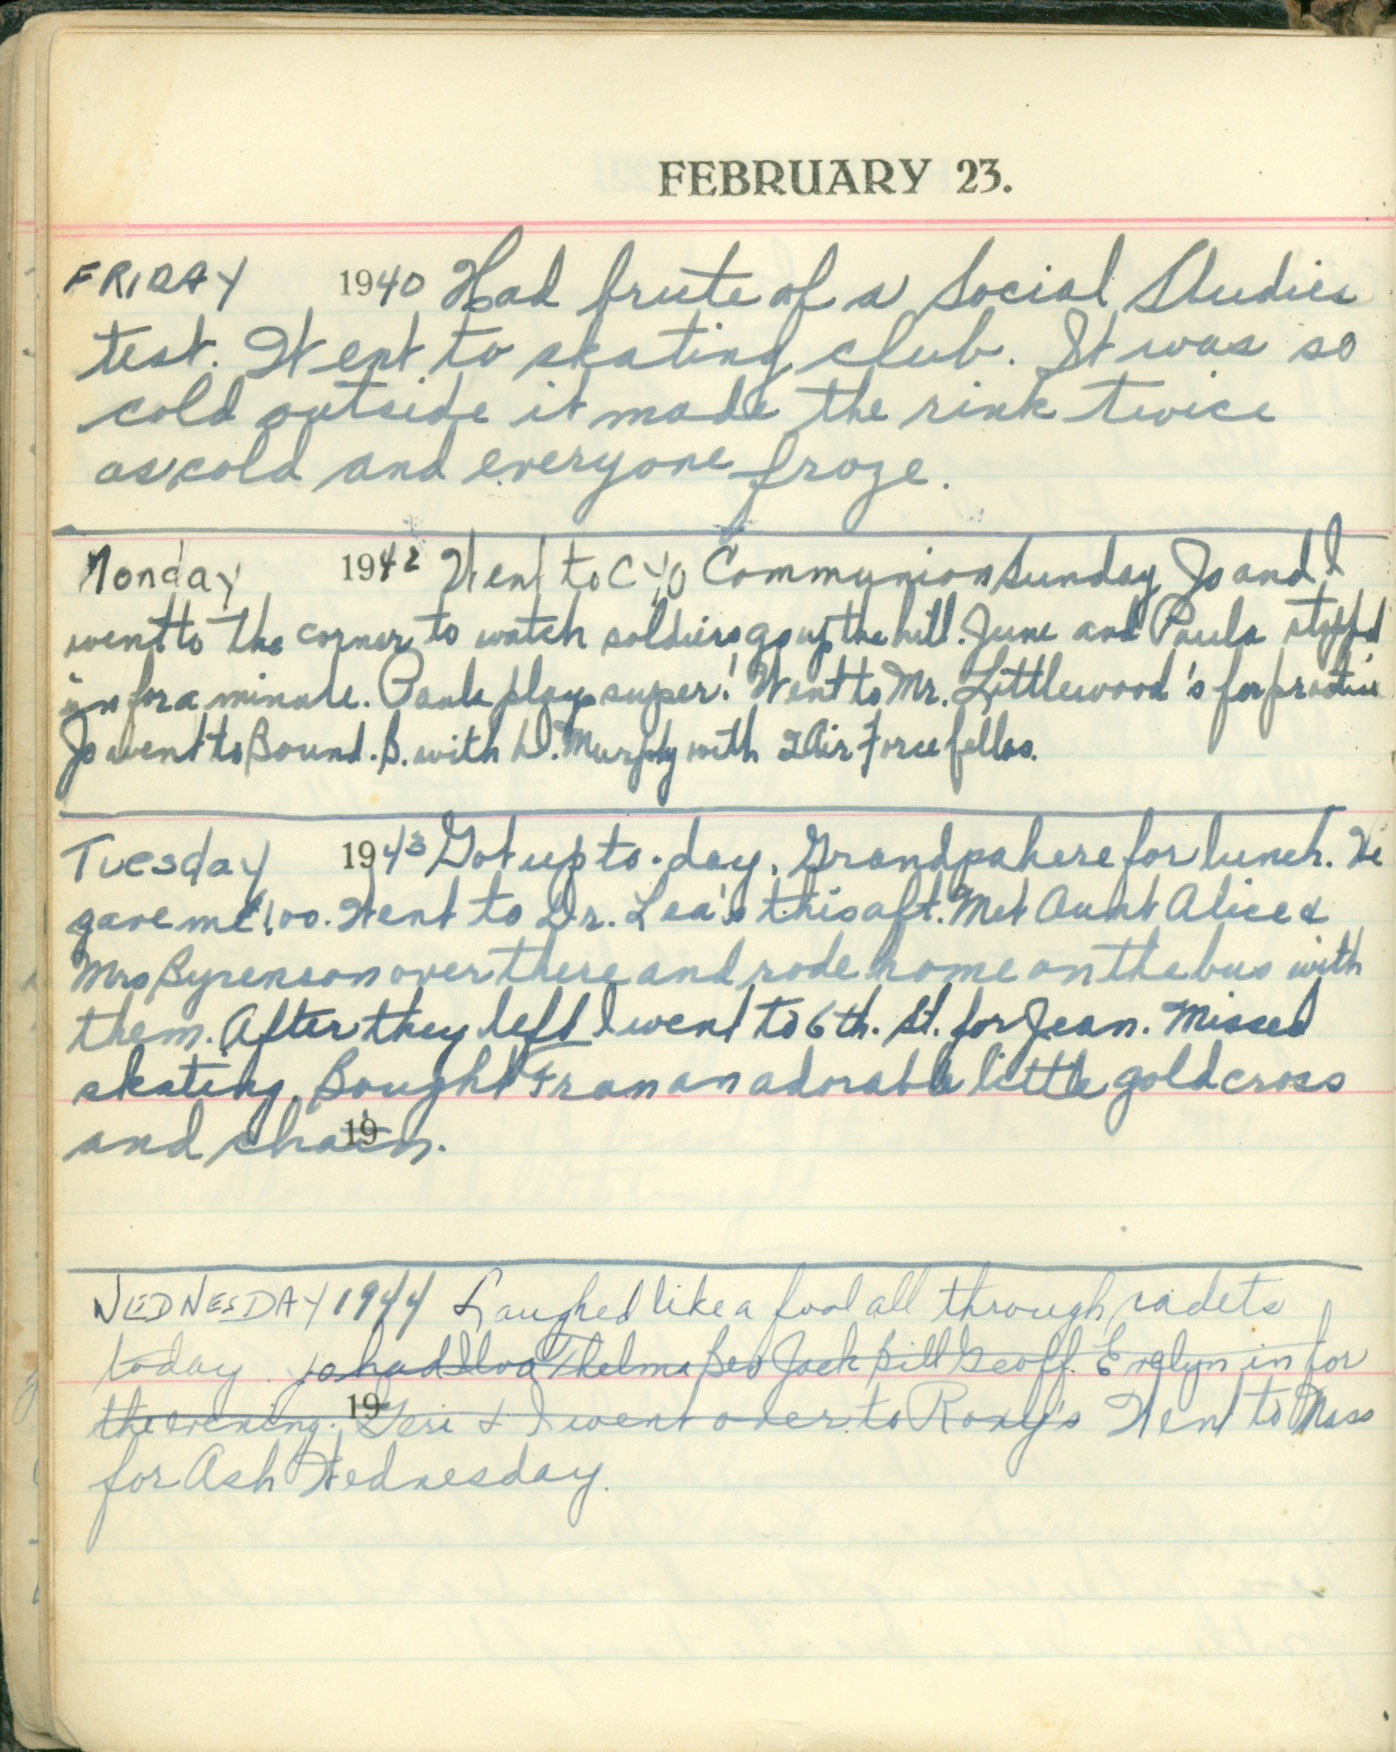 FEBRUARY 23.
FRIDAY 1940 Had brute of a Social Studies
test. Went to skating club. It was so
cold outside it made the rink twice
as cold and everyone froze.
Monday 1942 Went to CYO Communion Sunday Jo and I
went to the corner to watch soldiers go up the hill. June and Paula stopped
in for a minute. Paula plays super! Went to Mr. Littlewood's for practice
Jo went to Bound. B. with D. Murphy with 2 Air Force fellas.
Tuesday 1943 Got up to-day. Grandpa here for lunch. He
gave me 1.00. Went to Dr. Lea's this aft. Met Aunt Alice &
Mrs Byrenson over there and rode home on the bus with
them. After they left I went to 6th. St. for Jean. Missed
skating. Bought Fran an adorable little gold cross
and chain.
19
WEDNESDAY 1944 Laughed like a fool all through cadets
today. Jo had Thelma Bev Jack Bill Geoff. Evelyn in for
the evening. Geri & I went over to Roxy's Went to Mass
19
for Ash Wednesday.